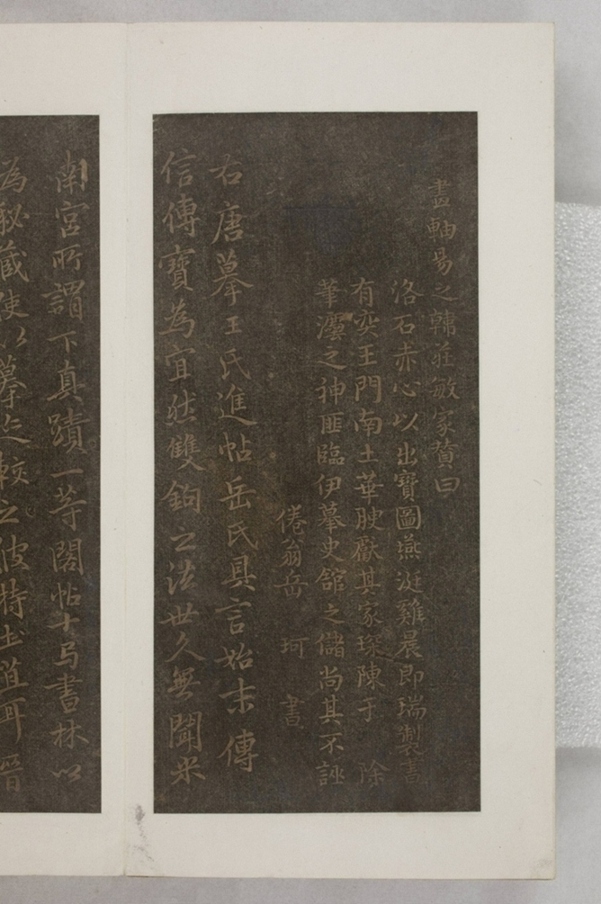 畫軸易之韓莊敏家贊曰
洛石赤心以出寶圖燕涎雞晨即瑞製書
有奕王門南土華腴厥其家琛陳于除
華灋之神匪臨伊摹史館之儲尚其不誣
倦翁岳珂書
右唐摹王氏進帖岳氏具言始末傳
信傳寶為宜然雙鉤之法世久無聞米
南宮所謂下真蹟一等閣帖十局書林以
為秘藏使以摹迹較之彼特土直耳晉